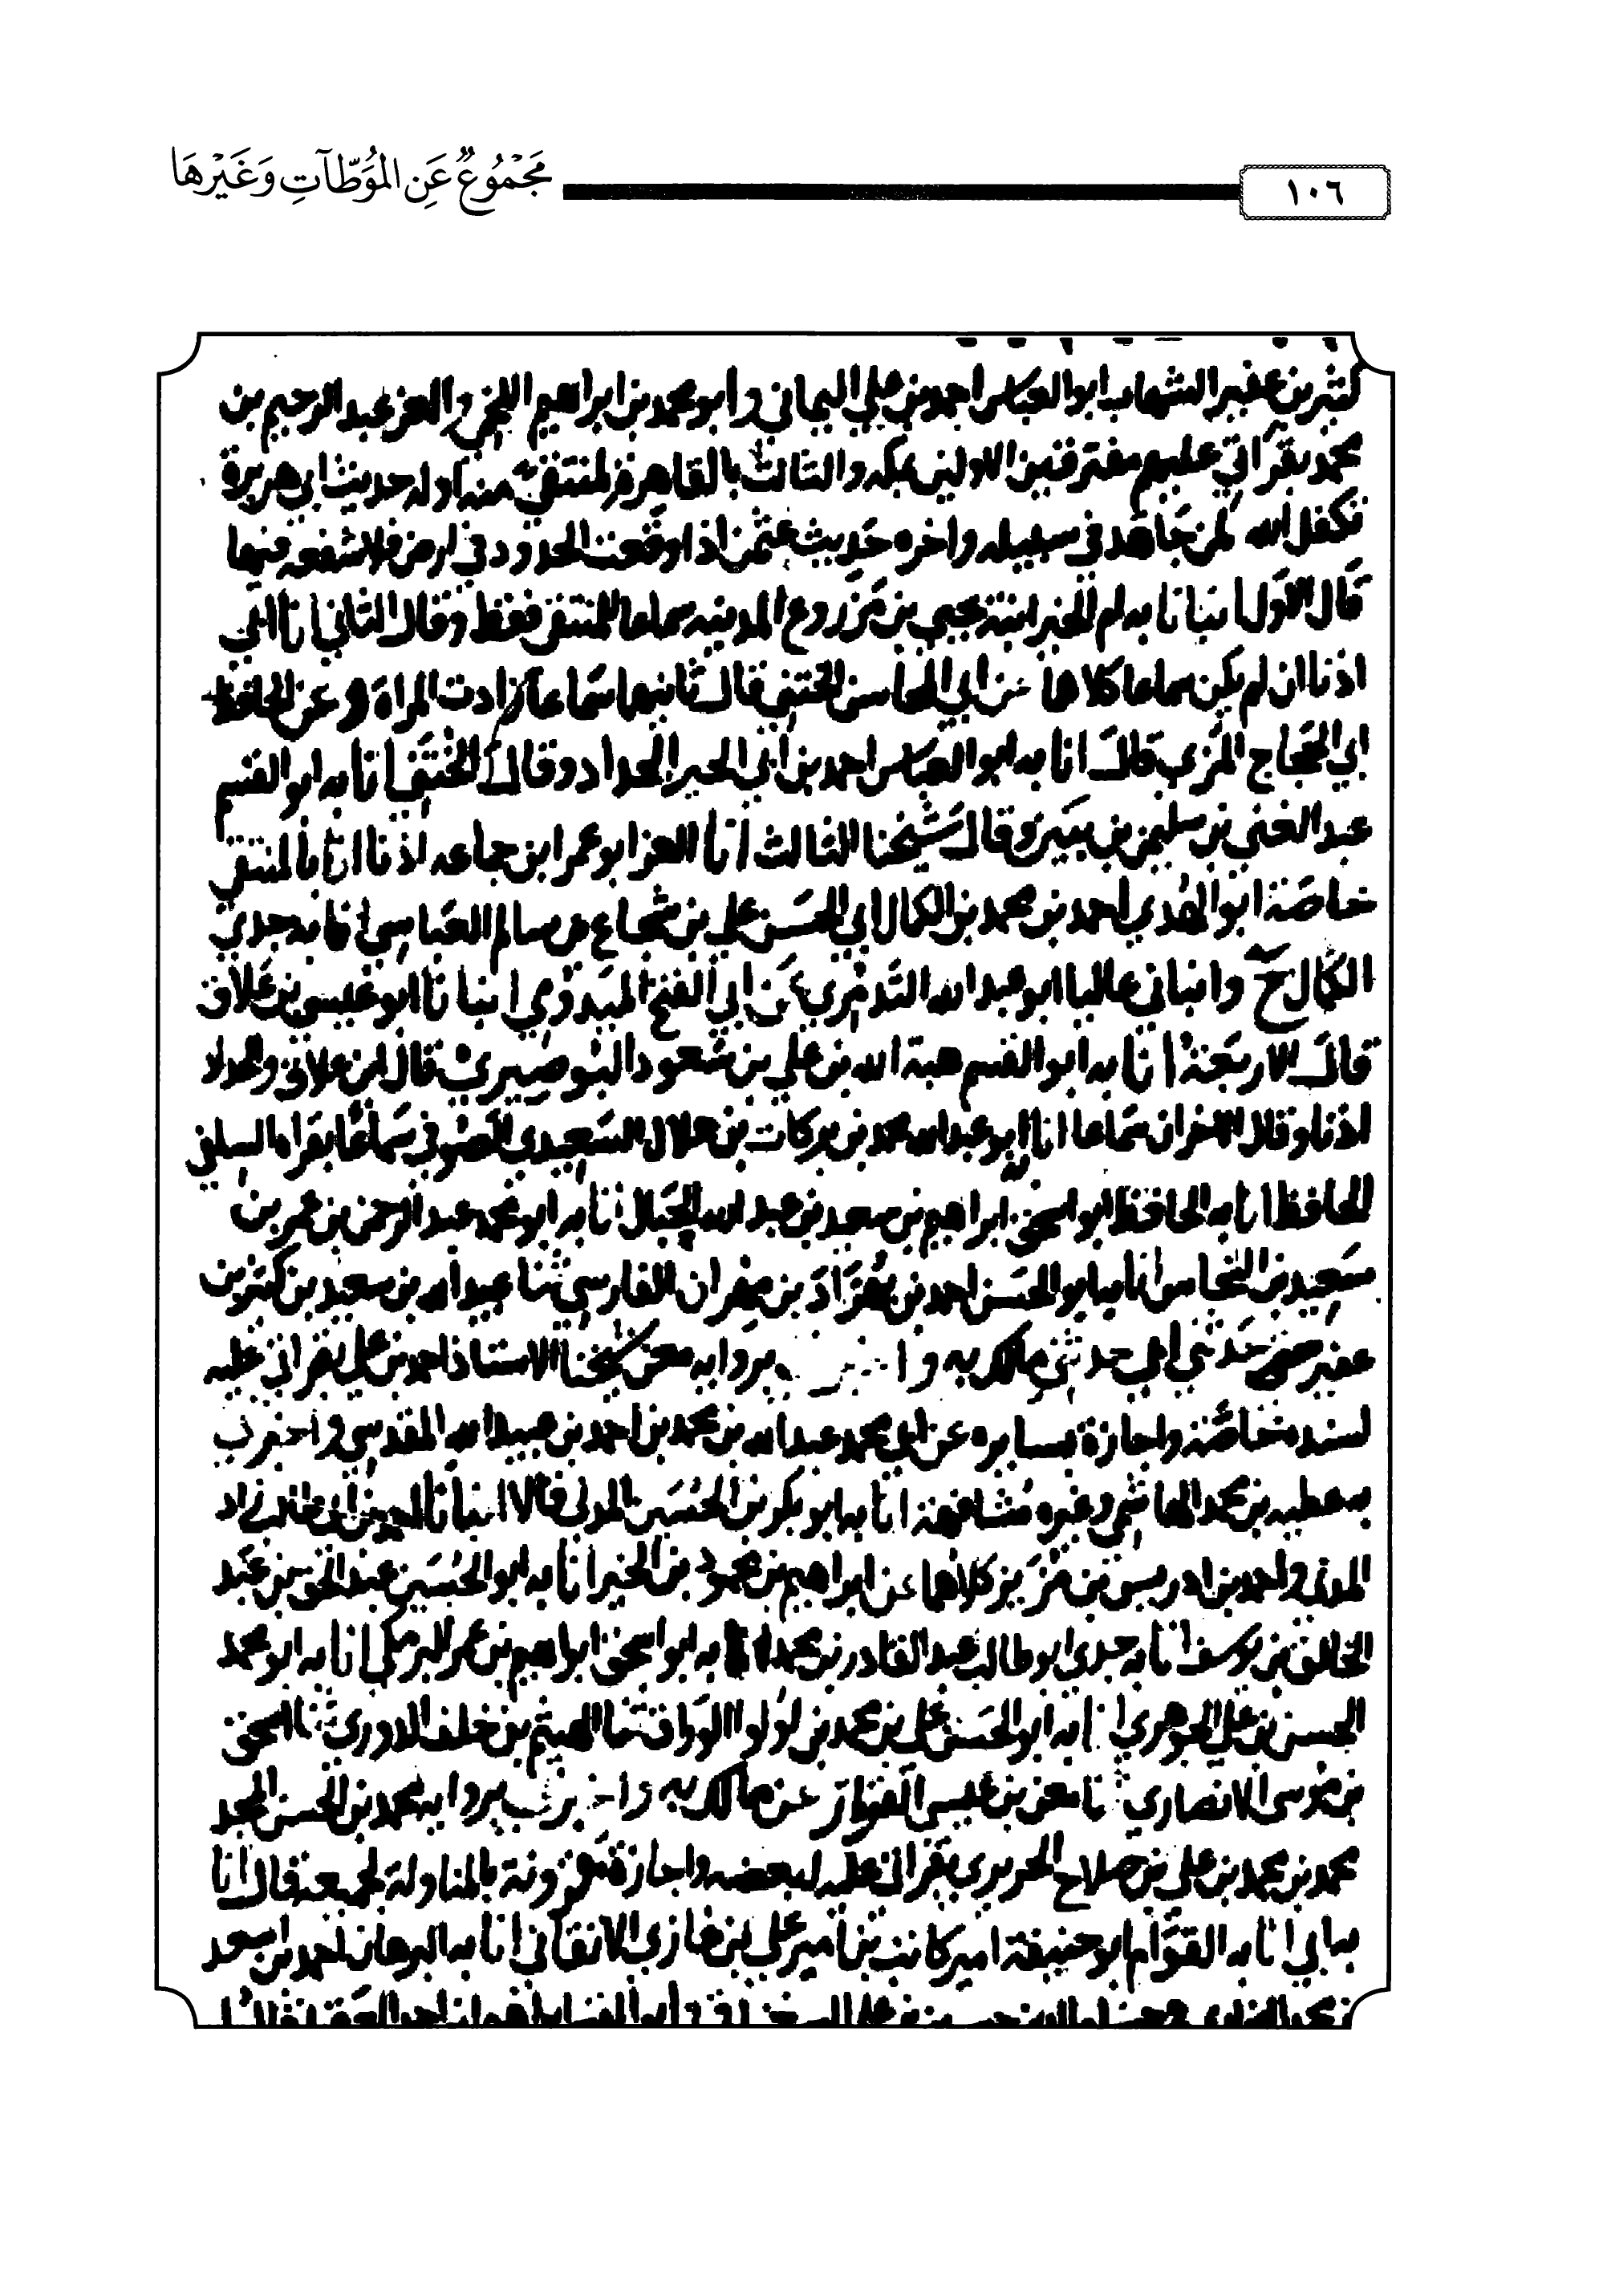 ١٠٦
مَجْمُوعٌ عَنِ المُوَطَّآتِ وَغَيْرِهَا
كثير بن عفير الشهاب ابو العباس احمد بن علي اليماني وابو محمد بن ابراهيم اللخمي والعز عبد الرحيم بن
محمد بقراتي عليهم مفترقين الاولين بمكه والثالث بالقاهرة لمنتقى منه اوله حديث ابي هريرة
تكفل الله لمن جَاهَد في سبيله واخره حَديث عثمن اذا وقعت الحدود في ارض فلا شفعه فيها
قَال الاَوّل انبانا به ام الخير ابنة يحيى بن مَزروع المدنيه سماعا للمنتقى فقط وقال الثاني انا ابي
اذنا ان لم يكن سماعا كلاهما عن ابي المحاسن الختني قال ثانيهما سَمَاعا زادت المراة وعن الحافظ
ابي الحجاج المزي قالا انا به ابو العباس احمد بن ابي الخير الحداد وقال الختني انا به ابو القسم
عبد الغني بن سليمن بن بنين وقال شيخنا الثالث انا العز ابو عمر ابن جماعه اذنا انا بالمنتقى
خاصَة ابو الهدي احمد بن محمد بن الكمال ابي الحسن علي بن شجاع بن سالم العباسي انا به جدي
الكمال ح وانباني عاليا ابو عبد الله التدمُري عَن ابي الفتح الميدومي انبانا ابو عيسى بن عَلاق
قال الاربعة انا به ابو القسم هبة الله بن علي بن مسعود البوصيري قال ابن علاق والحداد
اذنا وقال الاخران سَمَاعا انا ابو عبد الله محمد بن بركات بن هلال السَعيدي الصوفي سَمَاعًا بقراه السلفي
الحافظ انا به الحافظ ابو اسحق ابراهيم بن سعيد بن عبد الله الحبال انا به ابو محمد عبد الرحمن بن عمر بن
سَعيد بن النحاس انا به ابو الحسَن احمد بن بهزَاذ بن مهران الفارسي ثنا عبيد الله بن سعيد بن كثير بن
عفير حدثني ابي حدثني مالك به برواية معن شيخنا الاستاذ احمد بن علي بقراتي عليه
لسنده خاصَّة واجازة لسايره عن ابي محمد عبد الله بن محمد بن احمد بن عبيد الله المقدسي واخبرني
به عطيه بن محمد الهاشمي وغيره مُشافهة انا به ابو بكر بن الحُسَين المدني قالا انبانا ابي طالب زاد
المدني واحمد بن ادريس بن مُزَيز كلاهما عن ابراهيم بن محمود بن الخير انا به ابو الحُسَين عبد الحق بن عَبد
الخالق بن يوسف انا به جدي ابو طالب عبد القادر بن محمد انا به ابو اسحق ابراهيم بن عمر البرمكي انا به ابو محمد
الحسن بن علي الجوهري انا به ابو الحَسَن علي بن محمد بن لولو الوراق ثنا الهيثم بن خلف الدوري ثنا اسحق
بن مُوسى الانصاري ثنا معن بن عيسى القزاز عن مالك به واخبرني برواية محمد بن الحسن المجد
محمد بن محمد بن علي بن صلاح الحريري بقراتي عليه لبعضه واجازة مَقرونة بالمناولة لجميعه قال انا
به ابي انا به القوّام ابو حنيفة امير كاتب بن امير علي بن غازي الاتقاني انا به البرهان احمد بن اسعد